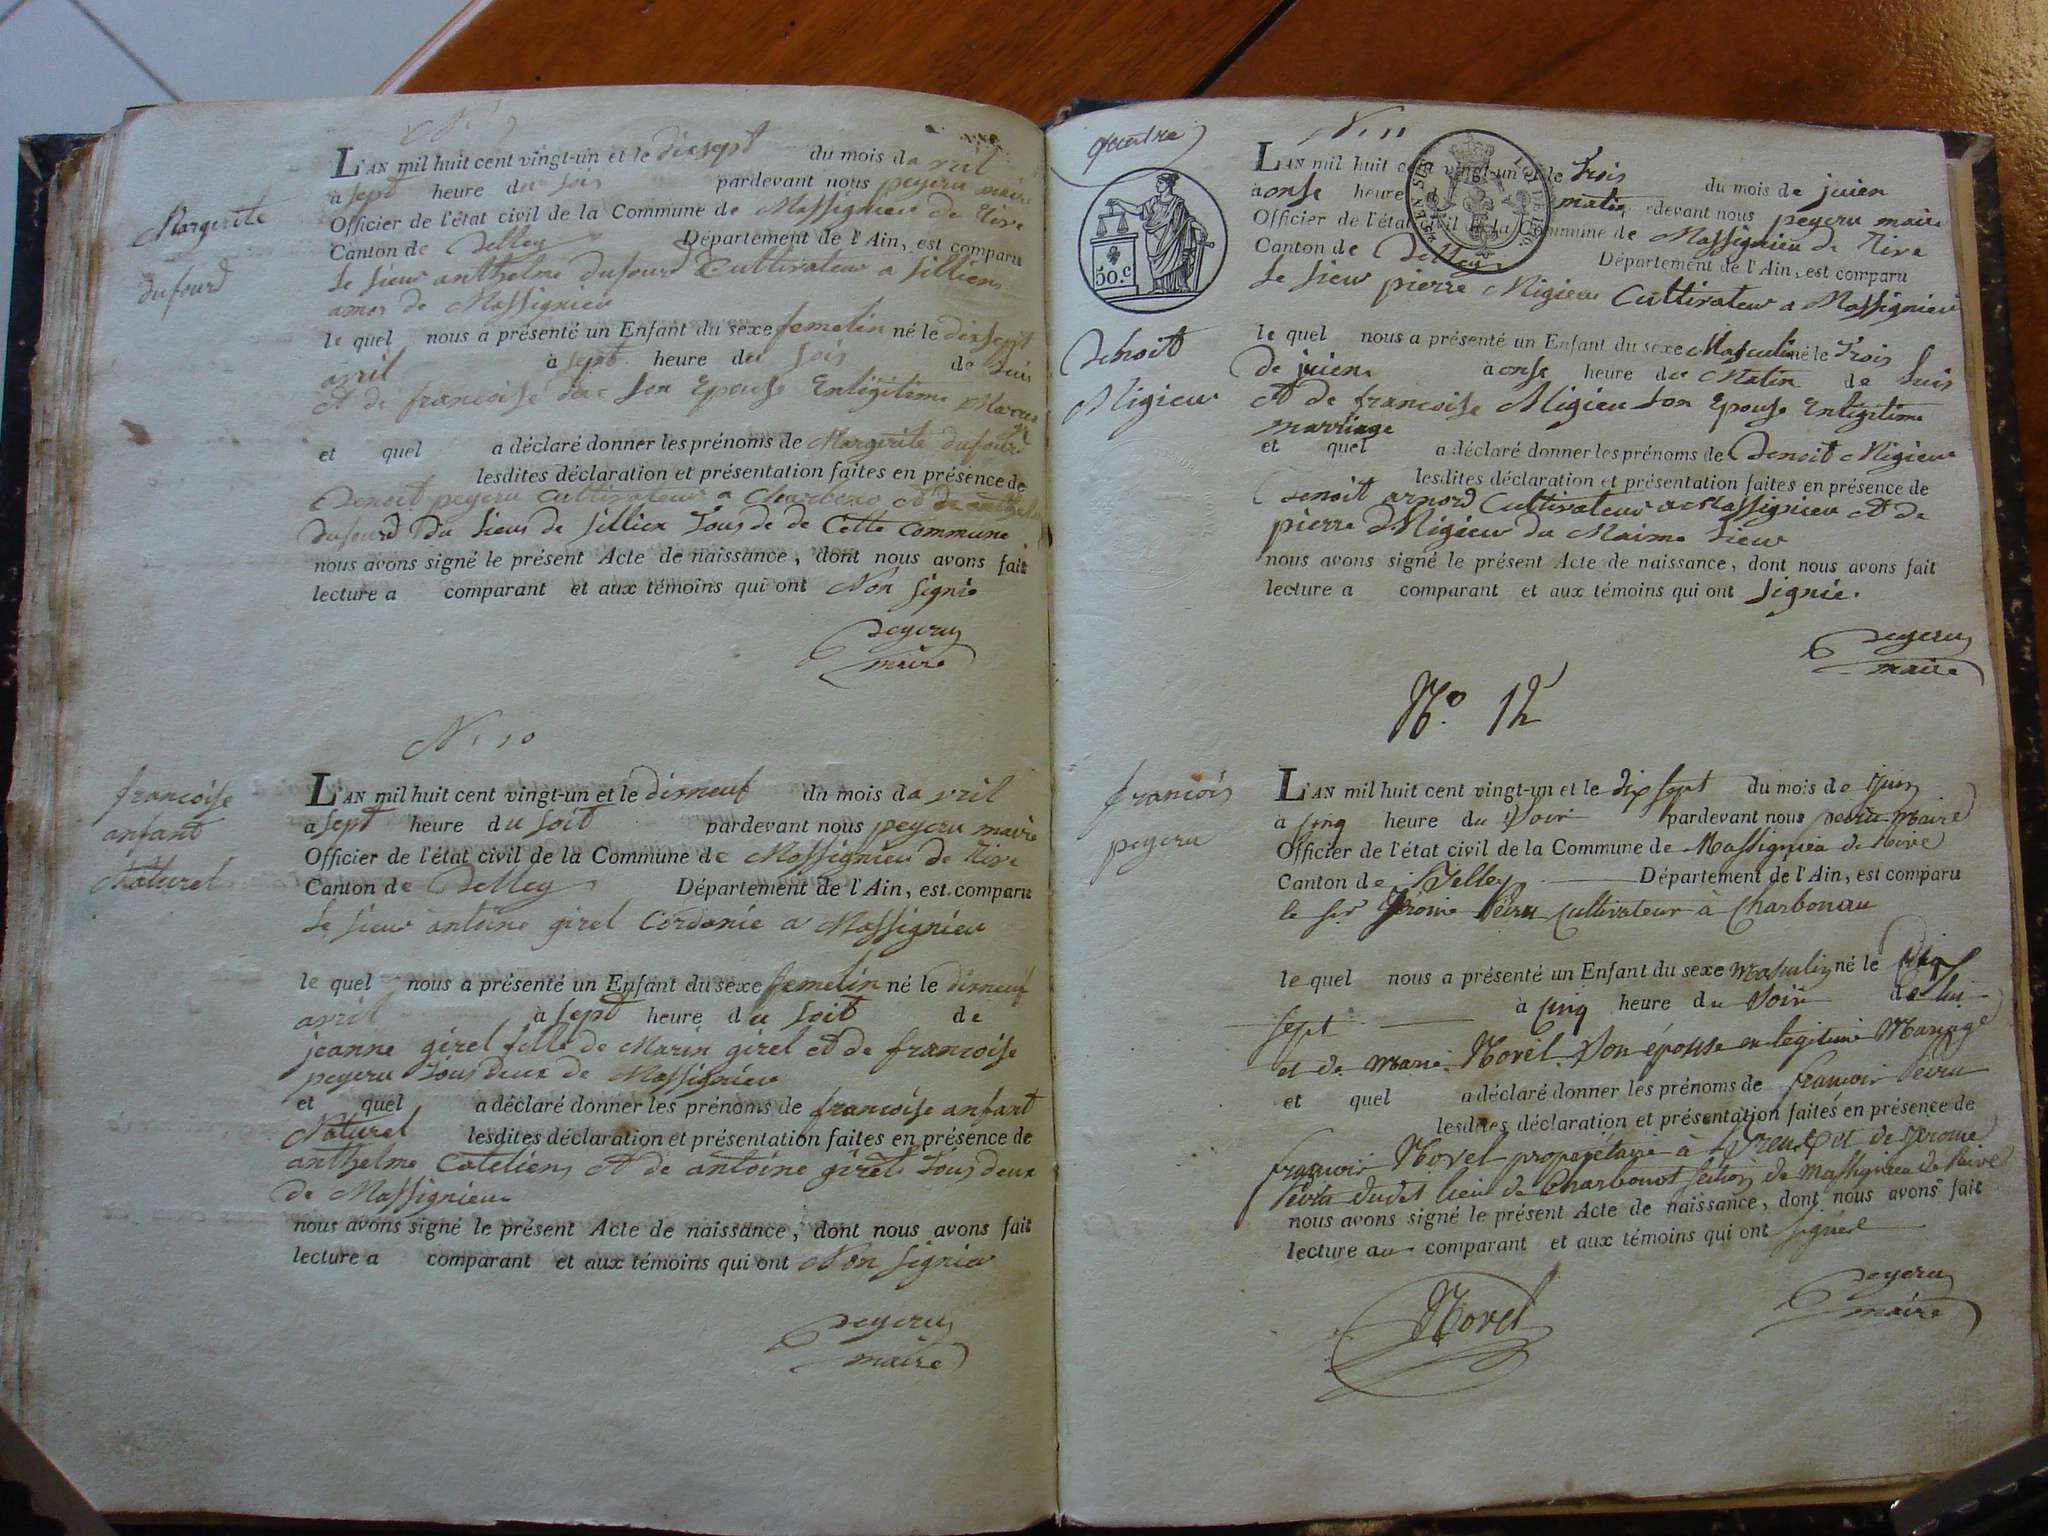 N. 9
Margerite
dufourd
L'AN mil huit cent vingt-un et le dixsept du mois da vril
a sept heure du soir pardevant nous peyeru maire
Officier de l'état civil de la Commune de Massignieu de Rive
Canton de Belley Département de l'Ain, est comparu
Le sieur anthelme dufourd Cultivateur a sillien
de Massignieu
le quel nous a présenté un Enfant du sexe femelin né le dixsept
avril à sept heure du soir de luis
et de francoise son Epouse Enlégitime
et quel a déclaré donner les prénoms de Margerite dufourd
lesdites déclaration et présentation faites en présence de
Benoit peyeru cultivateur a Charbono et de anthelme
dufourd du Lieus de sillien Tous de de Cette Commune
nous avons signé le présent Acte de naissance, dont nous avons fait
lecture a comparant et aux témoins qui ont Non signie
peyeru
maire
N. 10
francoise
anfant
Naturel
L'AN mil huit cent vingt-un et le dixneuf du mois da vril
a sept heure du soit pardevant nous peyeru maire
Officier de l'état civil de la Commune de Massignieu de Rive
Canton de Belley Département de l'Ain, est comparu
Le sieur antoine girel Cordonie a Massignieu
le quel nous a présenté un Enfant du sexe femelin né le dixneuf
avril à sept heure du soit de
jeanne girel fille de Marin girel et de francoise
peyeru tous deux de Massignieu
et quel a déclaré donner les prénoms de francoise anfant
Naturel lesdites déclaration et présentation faites en présence de
anthelme Cateliens et de antoine girel Tous deux
de Massignieu
nous avons signé le présent Acte de naissance, dont nous avons fait
lecture a comparant et aux témoins qui ont Non signie
peyeru
maire
N. 11
50.c
Benoit
Migieu
L'AN mil huit cent vingt-un et le Trois du mois de juien
a onse heure du matin devant nous peyeru maire
Officier de l'état civil de la Commune de Massignieu de Rive
Canton de Belley Département de l'Ain, est comparu
Le sieur pierre Migieu Cultivateur a Massignieu
le quel nous a présenté un Enfant du sexe Masculin né le Trois
de juien à onse heure du Matin de luis
et de francoise Migieu son Epouse Enlégitime
marriage
et quel a déclaré donner les prénoms de Benoit Migieu
lesdites déclaration et présentation faites en présence de
Benoit arnord Cultivateur a Massignieu et de
pierre Migieu du Maime Lieu
nous avons signé le présent Acte de naissance, dont nous avons fait
lecture a comparant et aux témoins qui ont signie.
peyeru
maire
No. 12
francois
peyeru
L'AN mil huit cent vingt-un et le dix sept du mois de Juin
à cinq heure du Soir pardevant nous peiru maire
Officier de l'état civil de la Commune de Massignieu de Rive
Canton de Belley Département de l'Ain, est comparu
le Sr Jerome Peiru Cultivateur à Charbonau
le quel nous a présenté un Enfant du sexe masculin né le Dix
sept à cinq heure du Soir de lui
et de marie Novel Son épouse en légitime Mariage
et quel a déclaré donner les prénoms de francois Peiru
lesdites déclaration et présentation faites en présence de
francois Novel propriétaire à et de Jerome
Peiru dudit lieu de Charbonot Section de Massignieu de Rive
nous avons signé le présent Acte de naissance, dont nous avons fait
lecture au comparant et aux témoins qui ont signé
Novel
peyeru
maire